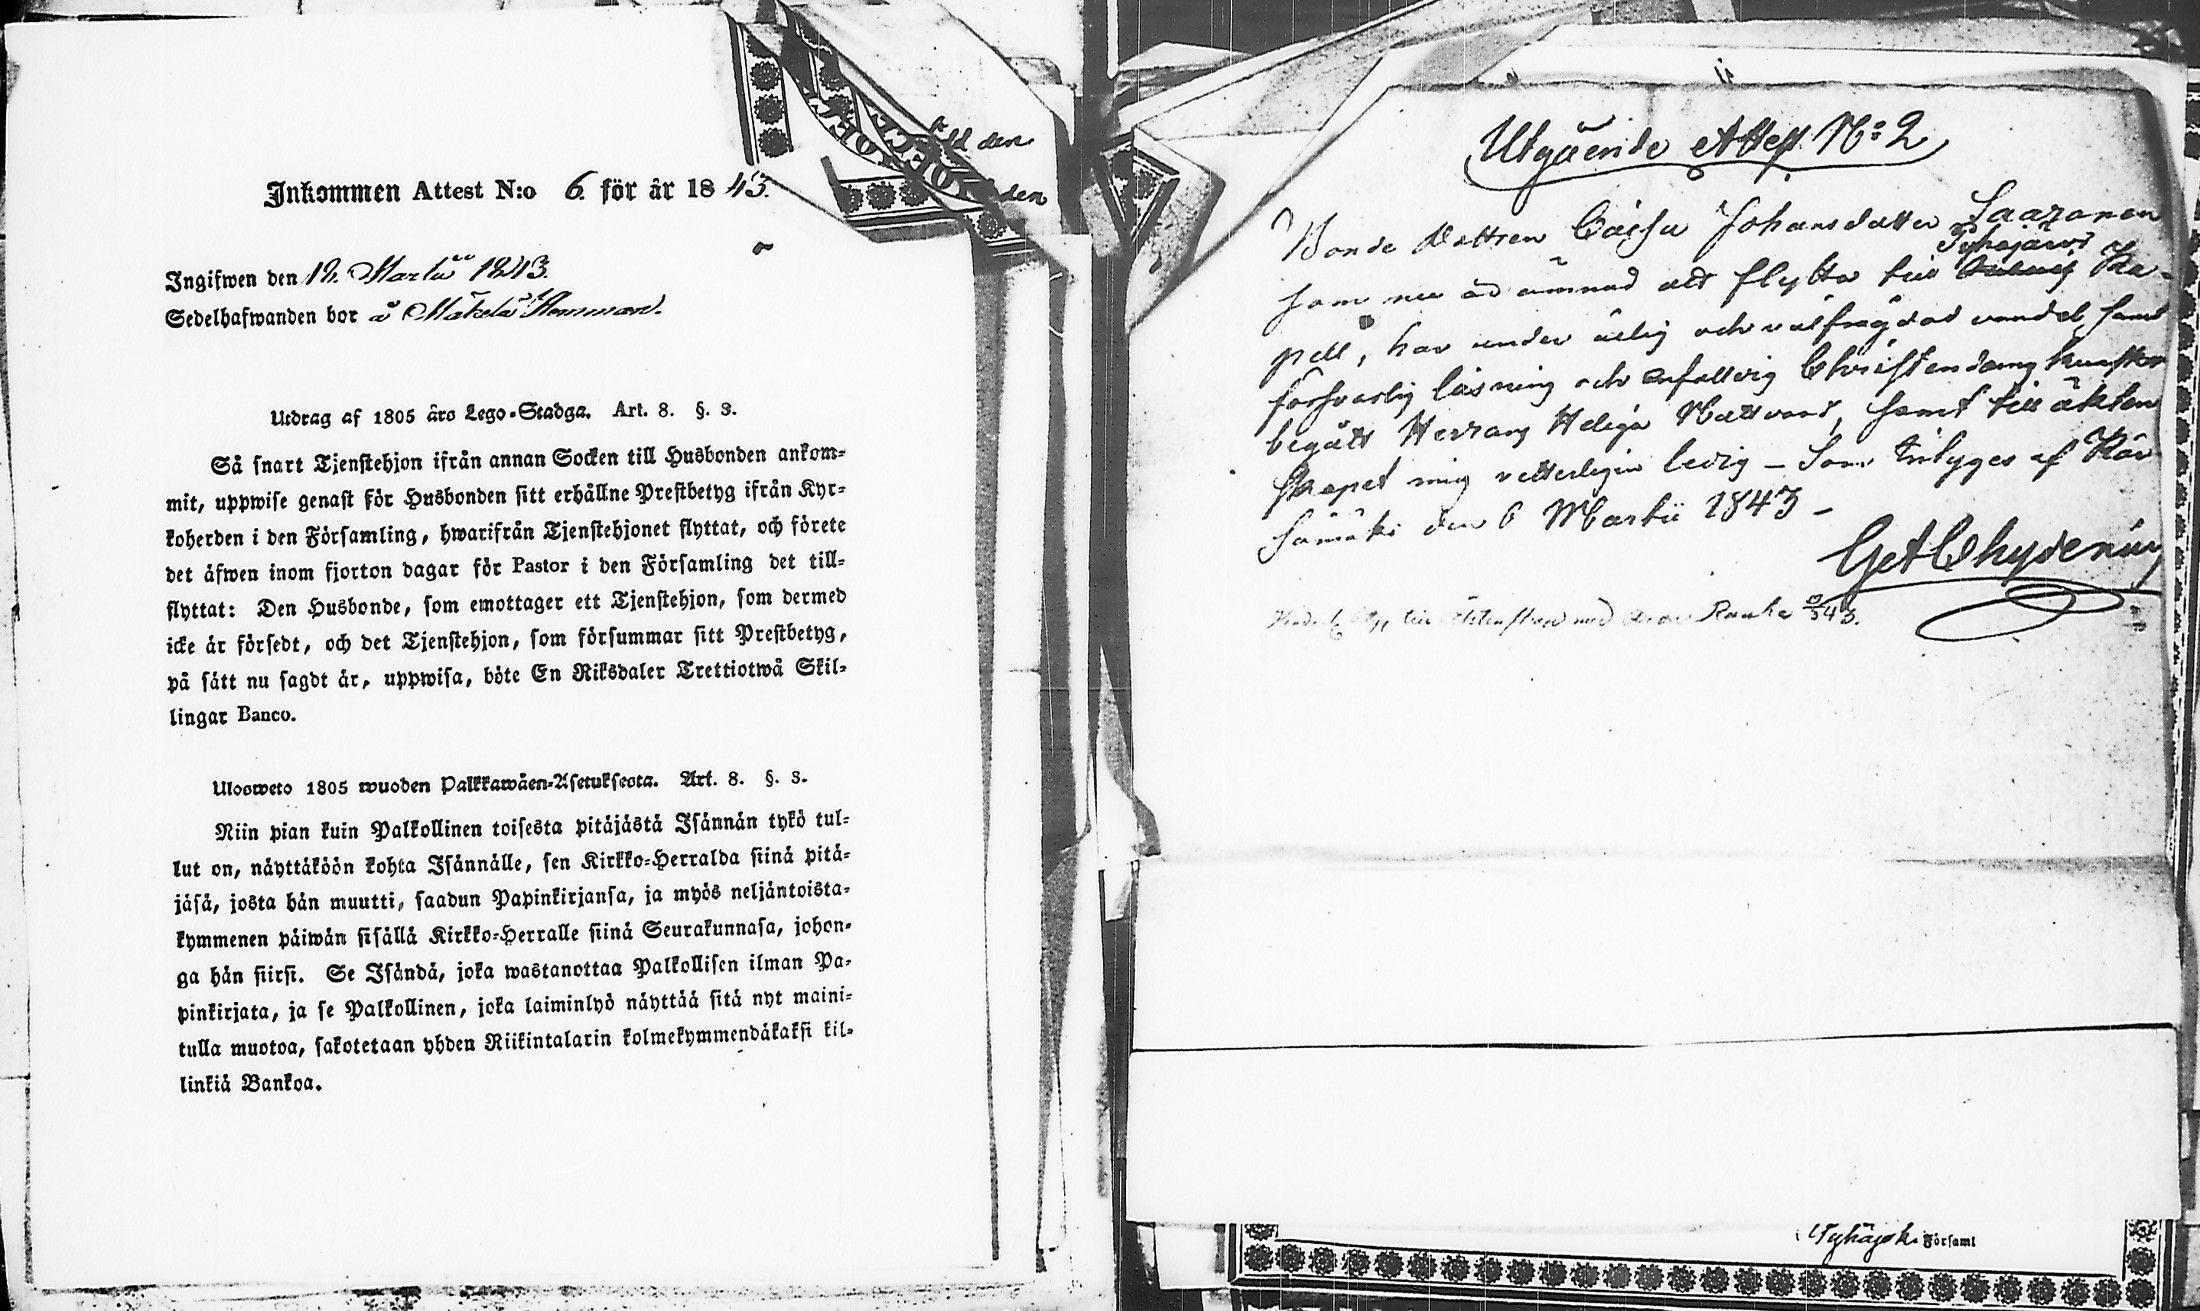 Inkommen Attest N:o 6. för år 1843.
Ingifwen den 12. Martii 1843.
Sedelhafwanden bor å Mäkelä Hemman.
Utdrag af 1805 års Lego-Stadga. Art. 8. §. 3.
Så snart Tjenstehjon ifrån annan Socken till Husbonden ankom-
mit, uppwise genast för Husbonden sitt erhållne Prestbetyg ifrån Kyr-
koherden i den Församling, hwarifrån Tjenstehjonet flyttat, och förete
det äfwen inom fjorton dagar för Pastor i den Församling det till-
flyttat: Den Husbonde, som emottager ett Tjenstehjon, som dermed
icke är försedt, och det Tjenstehjon, som försummar sitt Prestbetyg,
på sätt nu sagdt är, uppwisa, böte En Riksdaler Trettiotwå Skil-
lingar Banco.
Ulosweto 1805 wuoden Palkkawäen-Asetuksesta. Art. 8. §. 3.
Niin pian kuin Palkollinen toisesta pitäjästä Isännän tykö tul-
lut on, näyttäköön kohta Isännälle, sen Kirkko-Herralda siinä pitä-
jäsä, josta hän muutti, saadun Papinkirjansa, ja myös neljäntoista-
kymmenen päiwän sisällä Kirkko-Herralle siinä Seurakunnasa, johon-
ga hän siirsi. Se Isändä, joka wastanottaa Palkollisen ilman Pa-
pinkirjata, ja se Palkollinen, joka laiminlyö näyttää sitä nyt maini-
tulla muotoa, sakotetaan yhden Riikintalarin kolmekymmendäkaksi kil-
linkiä Bankoa.
den
den
Utgående Attest N:o 2
Bonde Dottren Caisa Johansdotter Saaranen
Pyhäjärvi
som nu är ämnad att flytta till Ka-
pell, har under ärlig och välfrägdad vandel, samt
försvarlig läsning och enfaldig Christendoms kunskap
begått Herrans Heliga Nattvard, samt till äkten
skapet mig vetterligen ledig – Som intygas af Kär
sämäki den 6 Martii 1843 –
Get Chydenius
till äktenskap med Ranka 43.
Pyhäjoki Församl